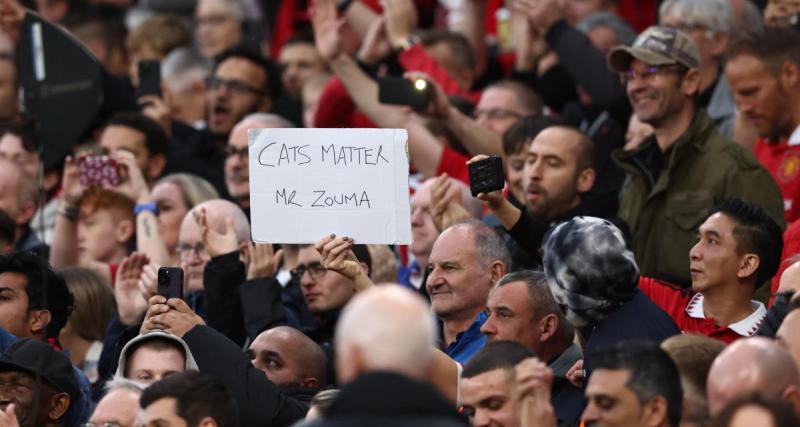 CATS MATTER
MR ZOUMA